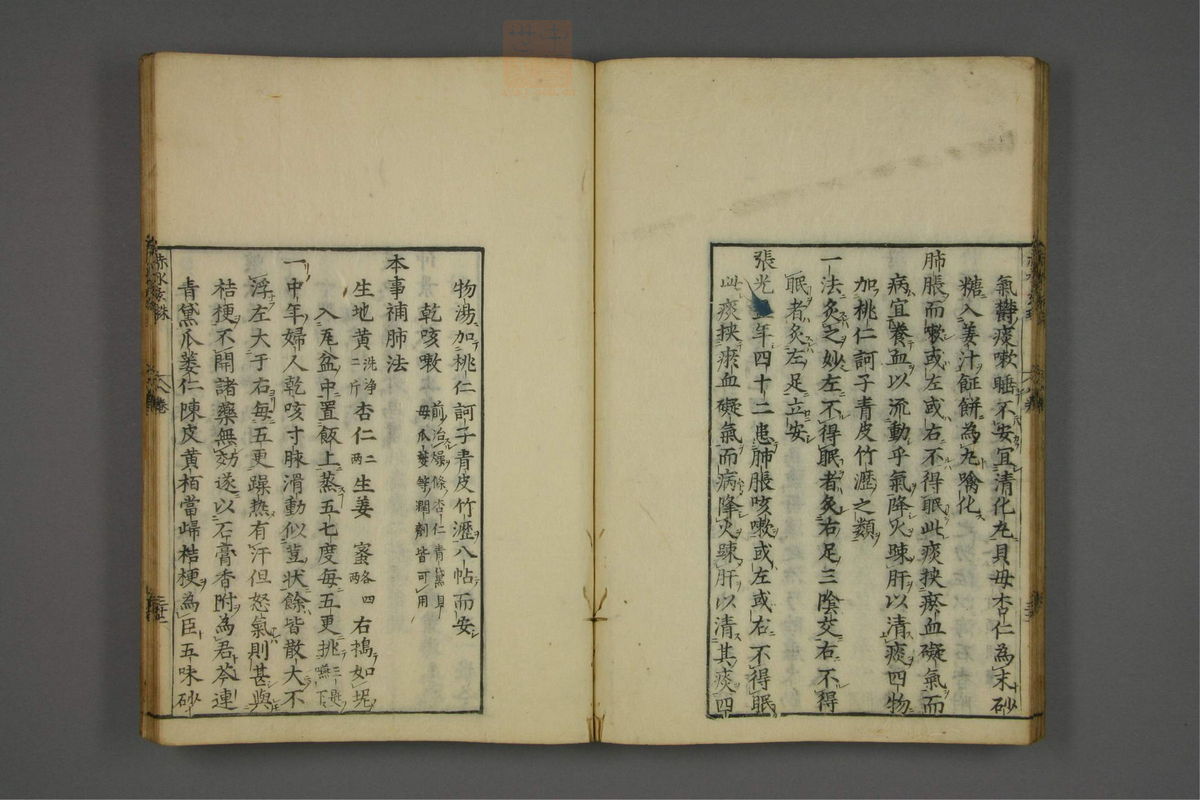 氣鬱痰嗽睡不安宜清化丸貝母杏仁為末砂
糖入姜汁鉦餅為丸噙化
肺脹而嗽或左或右不得眠此痰挾瘀血礙氣而
病宜養血以流動乎氣降火疎肝以清痰四物
加桃仁訶子青皮竹瀝之類
一法灸之妙左不得眠者灸右足三陰艾右不得
眠者灸左足立安
張光年四十二患肺脹咳嗽或左或右不得眠
此痰挾瘀血礙氣而病降火疎肝以清其痰四
物湯加桃仁訶子青皮竹瀝八帖而安
乾咳嗽 前治燥條杏仁青黛貝母瓜蔞等潤劑皆可用
本事補肺法
生地黃洗淨二斤杏仁二兩生姜 蜜各四兩右搗如坭
入瓦盆中置飯上蒸五七度每五更挑三匙嚥下
一中年婦人乾咳寸脉滑動似荳状餘皆散大不
浮左大于右每五更躁热有汗但怒氣則甚與
桔梗不開諸藥無効遂以石膏香附為君芩連
青黛瓜蔞仁陳皮黃栢當歸桔梗為臣五味砂
赤水玄珠
卷